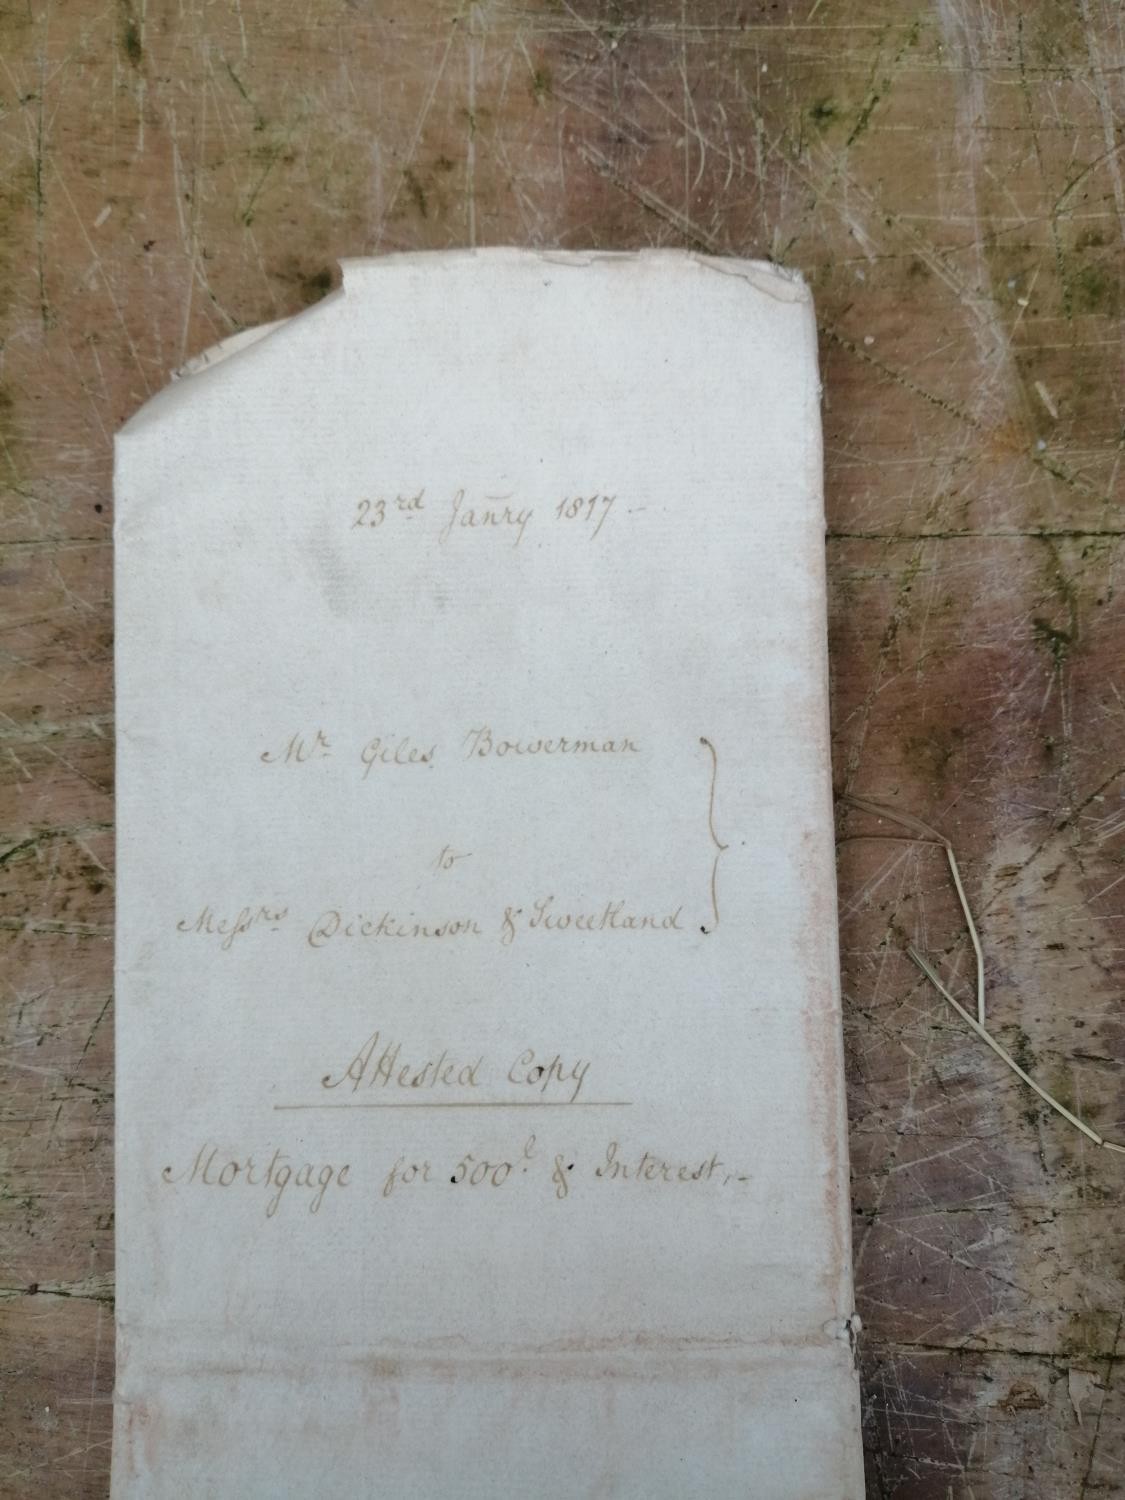 23rd Janry 1817 -
Mr Giles Bowerman
to
Messrs Dickinson & Sweetland
Attested Copy
Mortgage for 500l & Interest,-